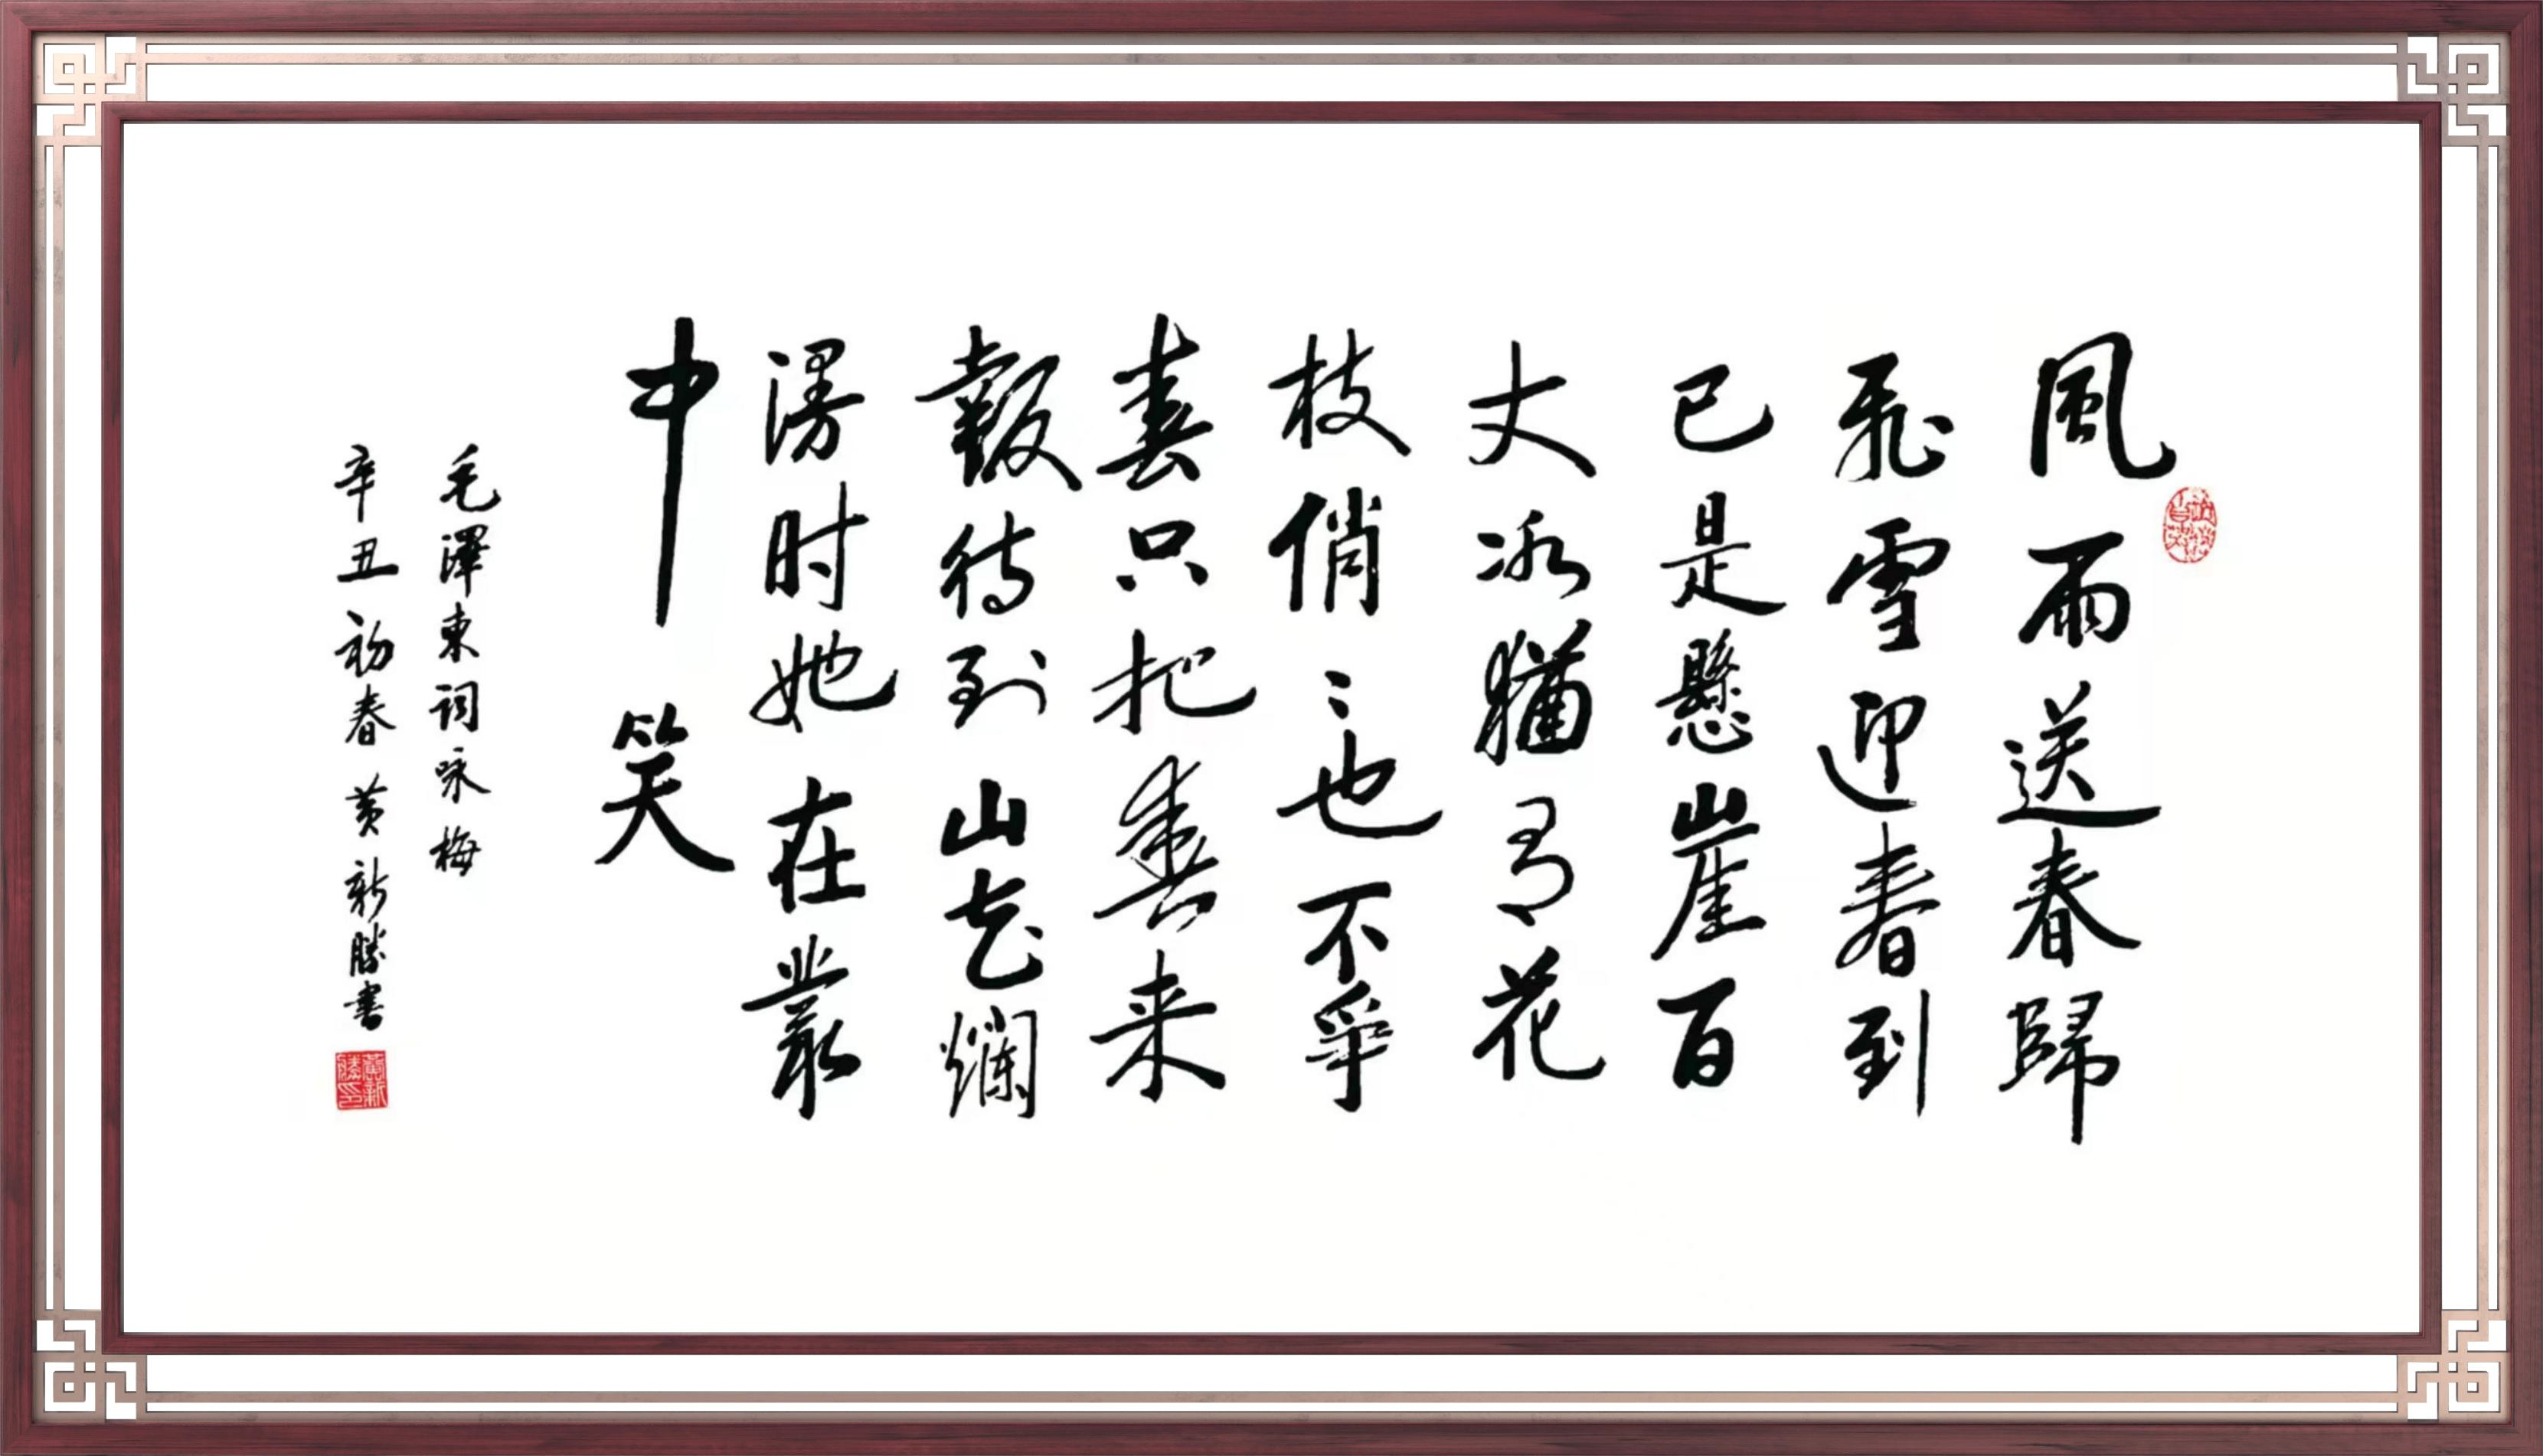 風雨送春歸
飛雪迎春到
已是懸崖百
丈冰猶有花
枝俏〻也不爭
春只把春来
報待到山花爛
漫时她在叢
中笑
毛澤東词咏梅
辛丑初春黄新勝書
黄新勝印